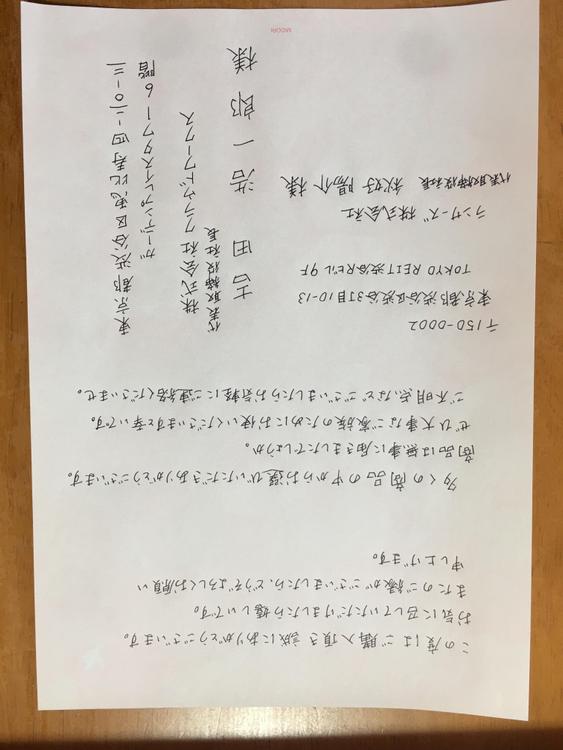 この度はご購入頂き誠にありがとうございます。
お気に召していただけましたら嬉しいです。
またのご縁がございましたら、どうぞよろしくお願い
申し上げます。
多くの商品の中からお選びいただきありがとうございます。
商品は無事に届きましたでしょうか。
ぜひ大事なご家族のためにお使いくださいますと幸いです。
ご不明点などございましたらお気軽にご連絡くださいませ。
〒150-0002
東京都渋谷区渋谷3丁目10-13
TOKYO REIT渋谷Rビル 9F
ランサーズ株式会社
代表取締役社長 秋好 陽介 様
東京都渋谷区恵比寿四-二〇-三
ガーデンプレイスタワー6階
株式会社クラウドワークス
代表取締役社長
吉田 浩一郎 様
MIDORI